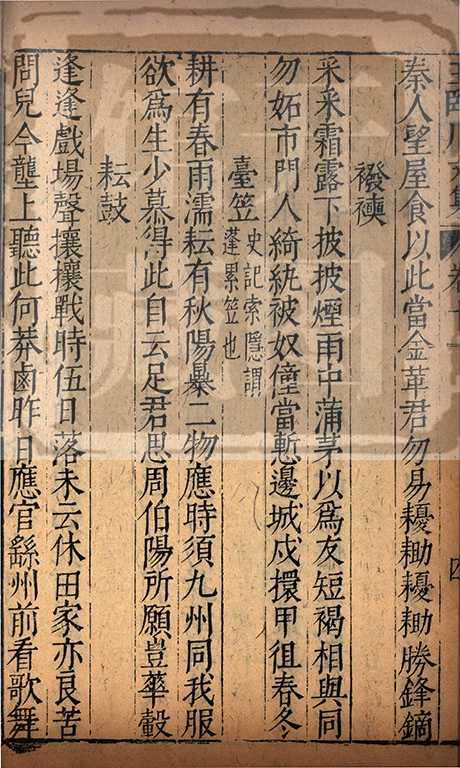 秦人望屋食以此當金革君勿易耰耡耰耡勝鋒鏑
襏襫
采采霜露下披披煙雨中蒲茅以爲友短褐相與同
勿妬市門人綺紈被奴僮當慙邊城戍擐甲徂春冬
臺笠
史記索隱謂
蓬累笠也
耕有春雨濡耘有秋陽暴二物應時須九州同我服
欲爲生少慕得此自云足君思周伯陽所願豈華轂
耘鼓
逢逢戲場聲攘攘戰時伍日落未云休田家亦良苦
問兒今壟上聽此何莽鹵昨日應官繇州前看歌舞